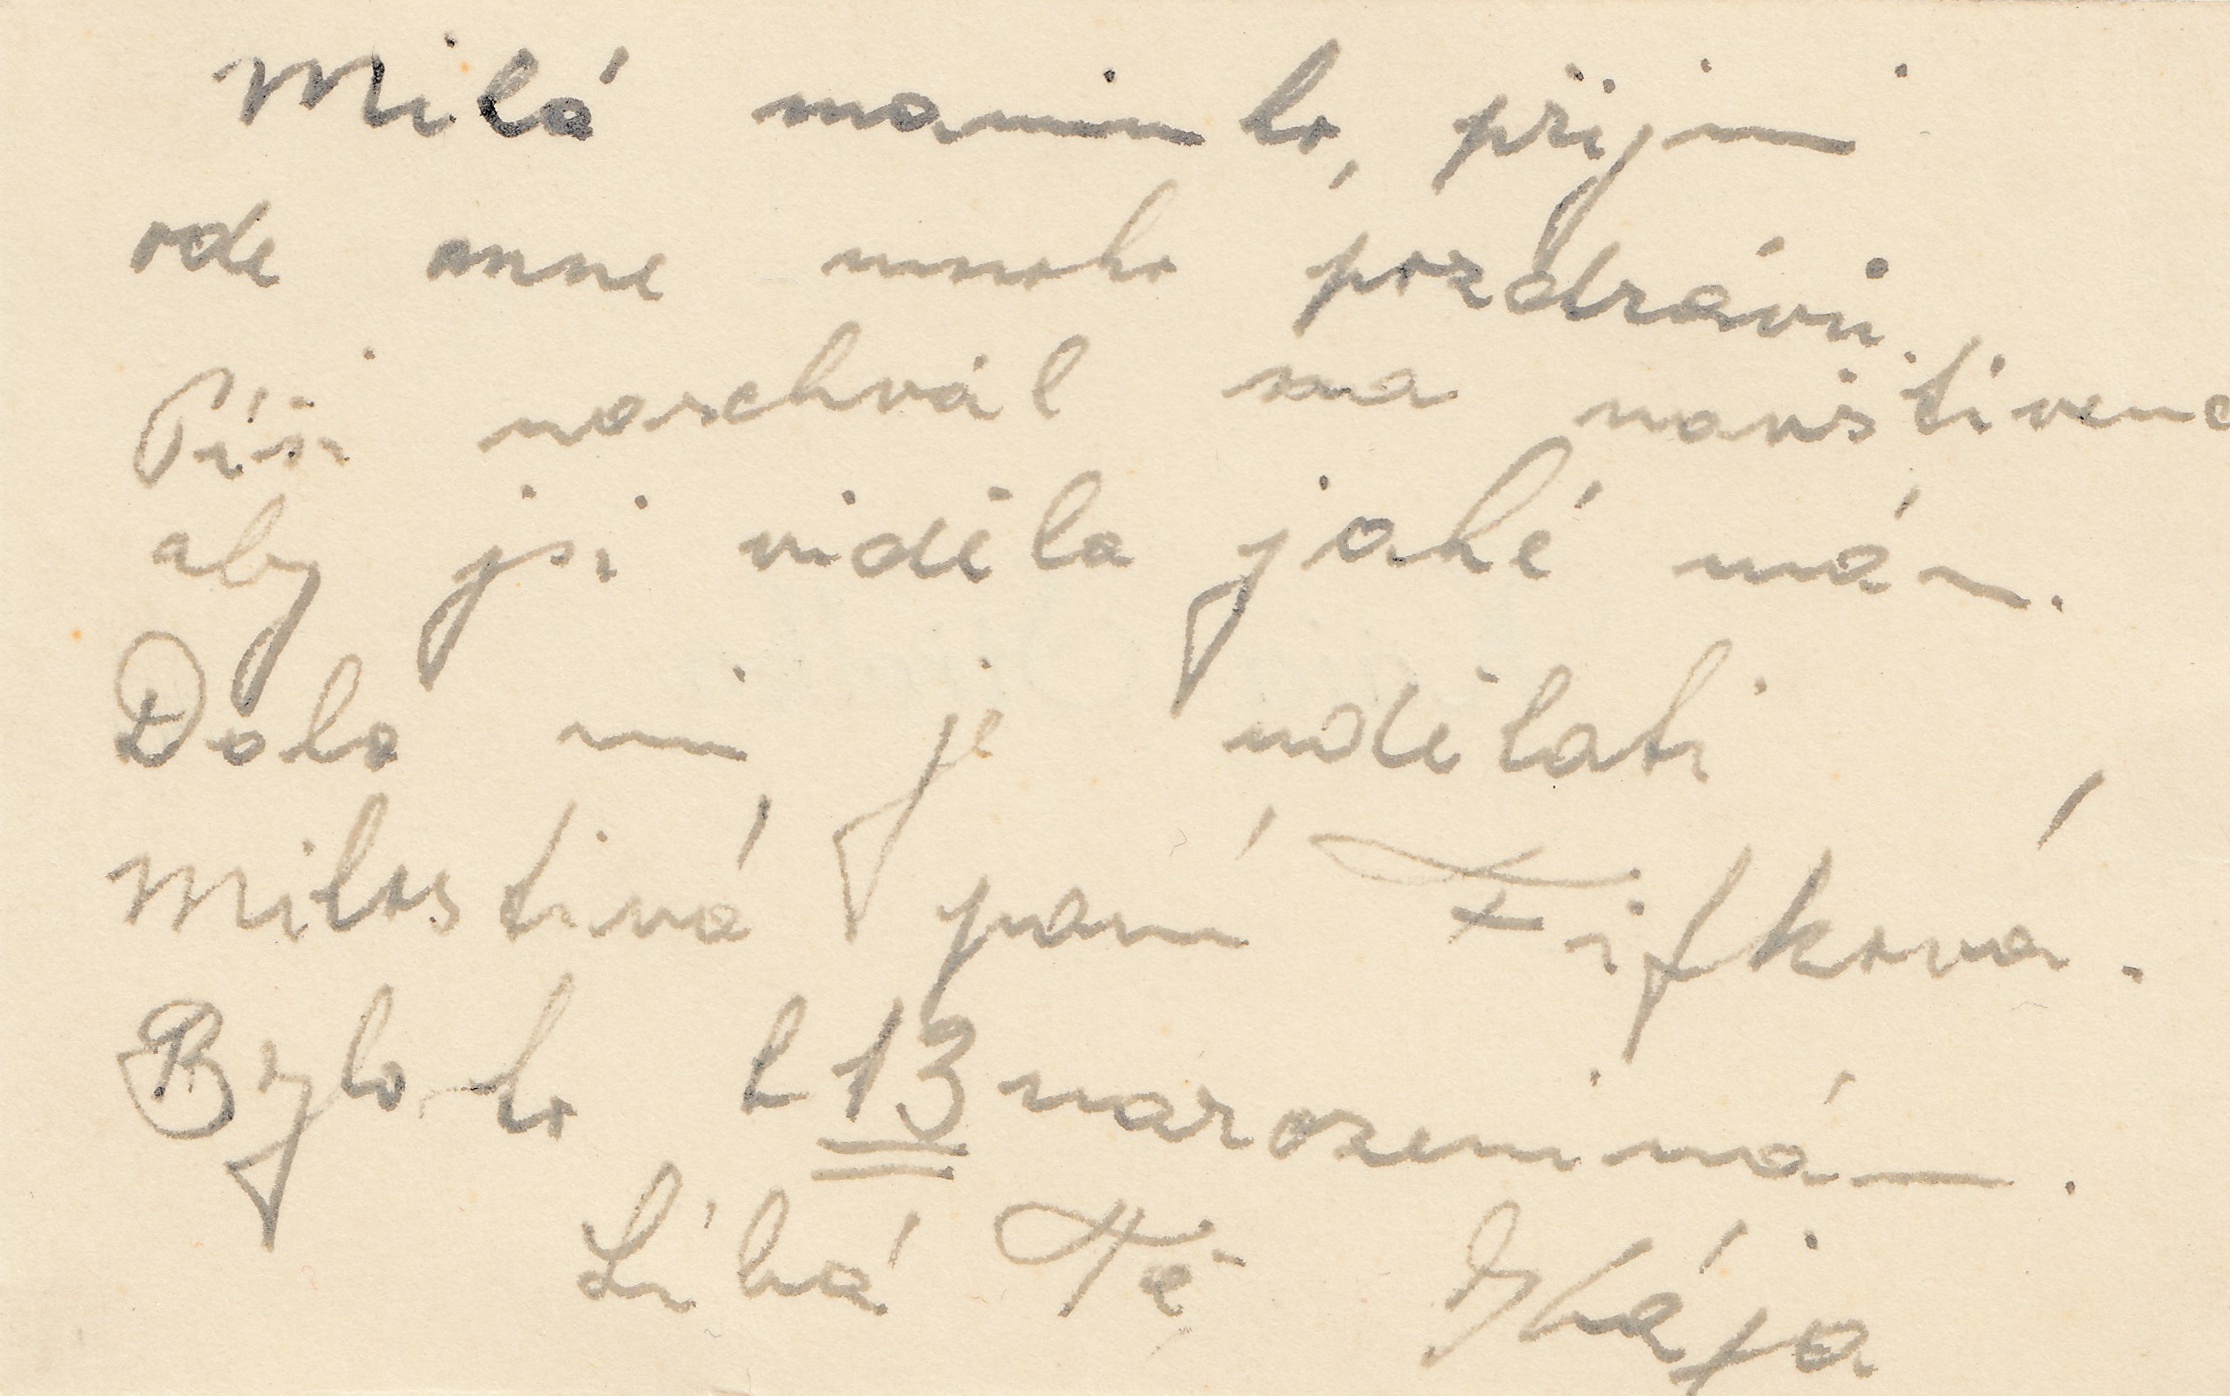 Milá maminko, přijmi
ode mne mnoho pozdravů.
Píši naschvál na navštívence
aby jsi viděla jaké mám.
Dala mi je udělati
Milostivá paní Fifková.
Bylo to k 13 narozeninám.
Líbá Tě Kája